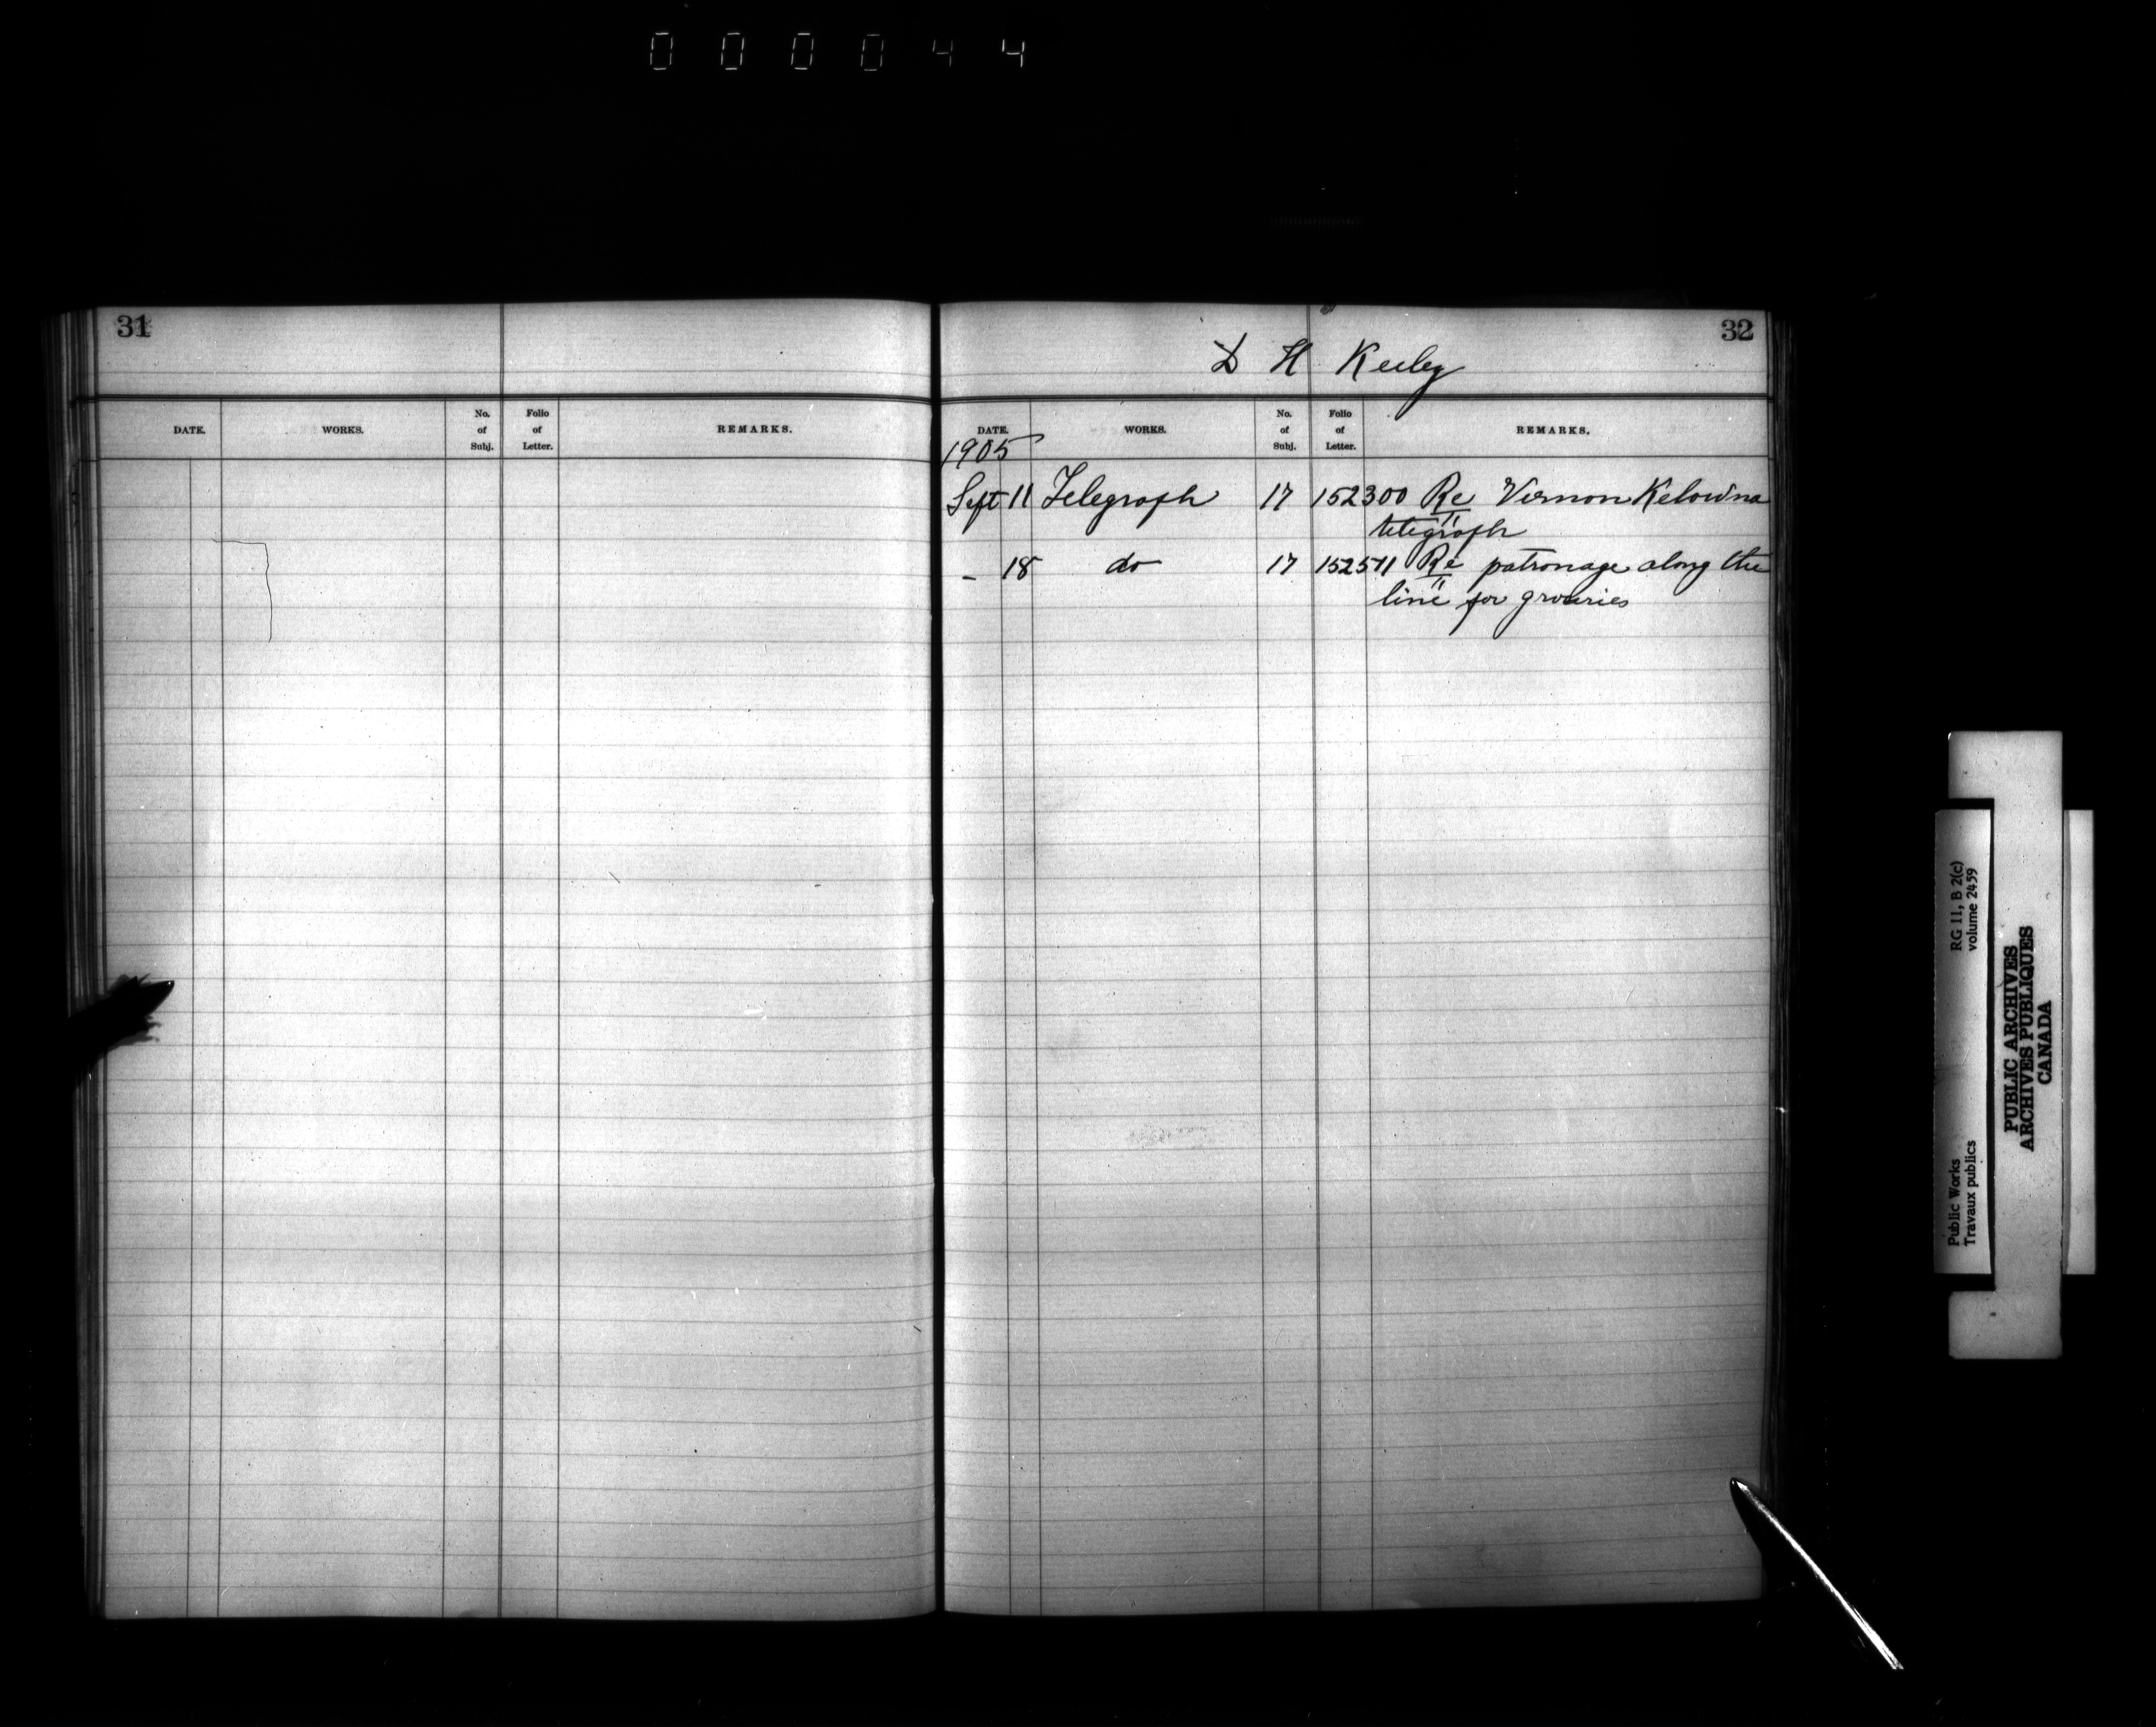 000044
31
DATE. WORKS. No. of Subj. Folio of Letter. REMARKS.
32
D H Keeley
DATE. WORKS. No. of Subj. Folio of Letter. REMARKS.
1905
Sept 11 Telegraph 17 152300 Re Vernon Kelowna
telegraph
- 18 do 17 152511 Re patronage along the
line for groceries
Public Works RG 11, B 2(c)
Travaux publics volume 2459
PUBLIC ARCHIVES
ARCHIVES PUBLIQUES
CANADA